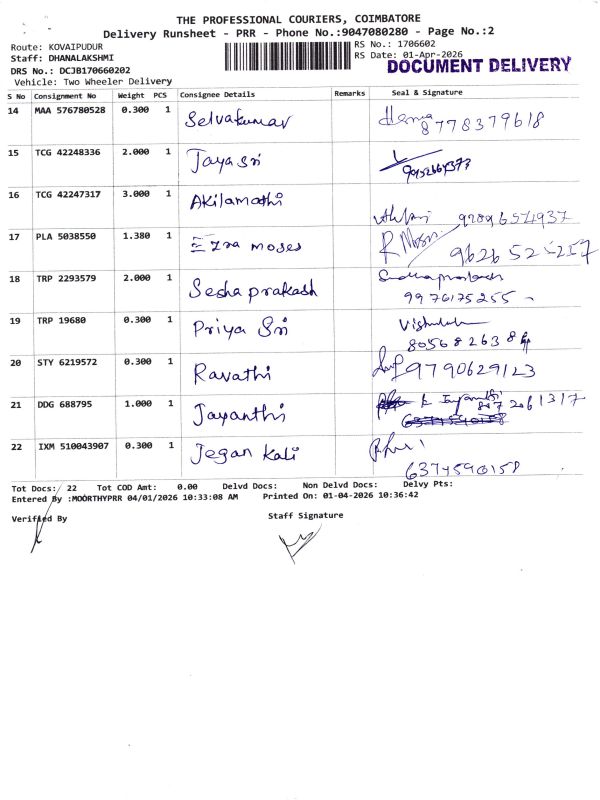 THE PROFESSIONAL COURIERS, COIMBATORE
Delivery Runsheet - PRR - Phone No.:9047080280 - Page No.:2
Route: KOVAIPUDUR
RS No.: 1706602
Staff: DHANALAKSHMI
RS Date: 01-Apr-2026
DRS No.: DCJB170660202
DOCUMENT DELIVERY
Vehicle: Two Wheeler Delivery
S No Consignment No Weight PCS Consignee Details Remarks Seal & Signature
14 MAA 576780528 0.300 1 Selvakumar Hema
8778379618
15 TCG 42248336 2.000 1 Jayasri
16 TCG 42247317 3.000 1 Akilamathi
17 PLA 5038550 1.380 1 Ezra moses R Moson
9626525257
18 TRP 2293579 2.000 1 Sesha prakash
9976175255
19 TRP 19680 0.300 1 Priya Sri
20 STY 6219572 0.300 1 Ravathi 9790629123
21 DDG 688795 1.000 1 Jayanthi
22 IXM 510043907 0.300 1 Jegan Kali
6374590158
Tot Docs: 22 Tot COD Amt: 0.00 Delvd Docs: Non Delvd Docs: Delvy Pts:
Entered By :MOORTHYPRR 04/01/2026 10:33:08 AM Printed On: 01-04-2026 10:36:42
Verified By Staff Signature